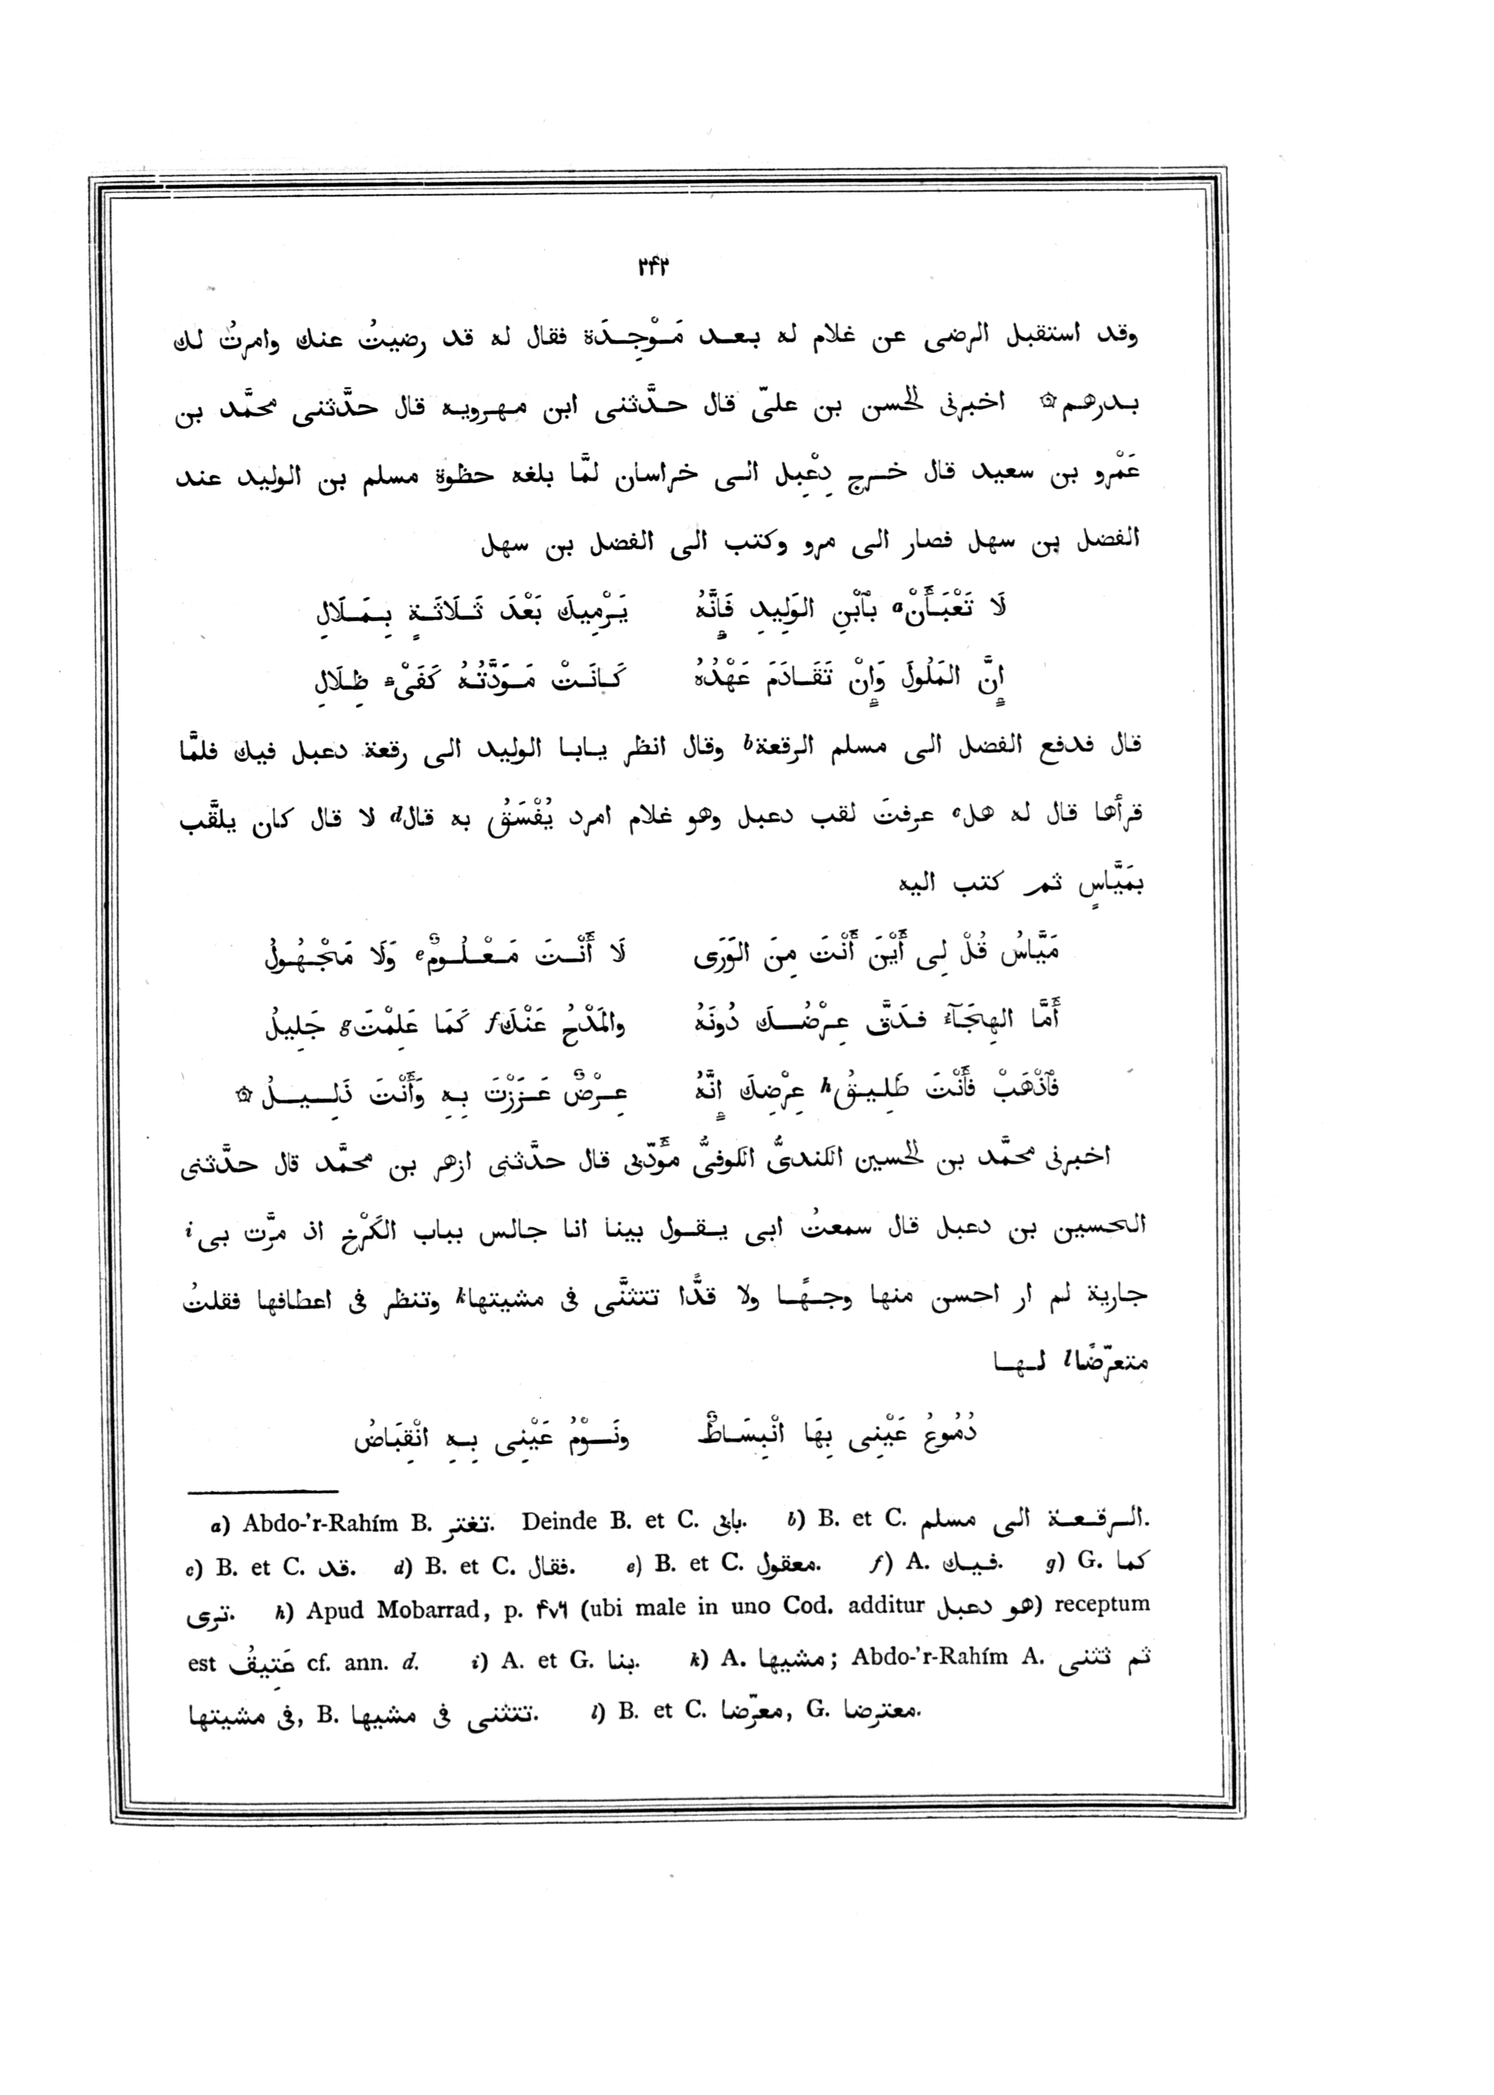 ٢٤٢
وقد استقبل الرضى عن غلام له بعد مَوْجِدَة فقال له قد رضيتُ عنك وامرتُ لك
بدرهم ۞ اخبرنى الحسن بن علىّ قال حدَّثنى ابن مهرويه قال حدَّثنى محمَّد بن
عَمْرو بن سعيد قال خرج دِعْبِل الى خراسان لمَّا بلغه حظوة مسلم بن الوليد عند
الفضل بن سهل فصار الى مرو وكتب الى الفضل بن سهل
لَا تَعْبَأَنْ a بِٱبْنِ الوَلِيدِ فَإِنَّهُ يَرْمِيكَ بَعْدَ ثَلَاثَةٍ بِمَلَالِ
إِنَّ المَلُولَ وَإِنْ تَقَادَمَ عَهْدُهُ كَانَتْ مَوَدَّتُهُ كَفَىْءِ ظِلَالِ
قال فدفع الفضل الى مسلم الرقعة b وقال انظر يابا الوليد الى رقعة دعبل فيك فلمَّا
قرأها قال له هل c عرفتَ لقب دعبل وهو غلام امرد يُفْسَقُ به قال d لا قال كان يلقَّب
بمَيَّاسٍ ثم كتب اليه
مَيَّاسُ قُلْ لِى أَيْنَ أَنْتَ مِنَ الوَرَى لَا أَنْتَ مَعْلُومٌ e وَلَا مَجْهُولُ
أَمَّا الهِجَآءُ فَدَقَّ عِرْضُكَ دُونَهُ والمَدْحُ عَنْكَ f كَمَا عَلِمْتَ g جَلِيلُ
فَٱذْهَبْ فَأَنْتَ طَلِيقُ h عِرْضِكَ إِنَّهُ عِرْضٌ عَزَزْتَ بِهِ وَأَنْتَ ذَلِيلُ ۞
اخبرنى محمَّد بن الحسين الكندىُّ الكوفىُّ مُؤَدِّبى قال حدَّثنى ازهر بن محمَّد قال حدَّثنى
الحسين بن دعبل قال سمعتُ ابى يقول بينا انا جالس بباب الكَرْخ اذ مرَّت بى i
جارية لم ار احسن منها وجهًا ولا قدًّا تتثنَّى فى مشيتها k وتنظر فى اعطافها فقلتُ
متعرّضًا l لها
دُمُوعُ عَيْنِى بِهَا انْبِسَاطٌ ونَوْمُ عَيْنِى بِهِ انْقِبَاضُ
a) Abdo-'r-Rahím B. تغتر. Deinde B. et C. بابى. b) B. et C. الرقعة الى مسلم.
c) B. et C. قد. d) B. et C. فقال. e) B. et C. معقول. f) A. فيك. g) G. كما
ترى. h) Apud Mobarrad, p. ۴۷۶ (ubi male in uno Cod. additur هو دعبل) receptum
est عَتِيقُ cf. ann. d. i) A. et G. بنا. k) A. مشيها; Abdo-'r-Rahím A. ثم تثنى
فى مشيتها, B. تتثنى فى مشيها. l) B. et C. معرّضا, G. معترضا.